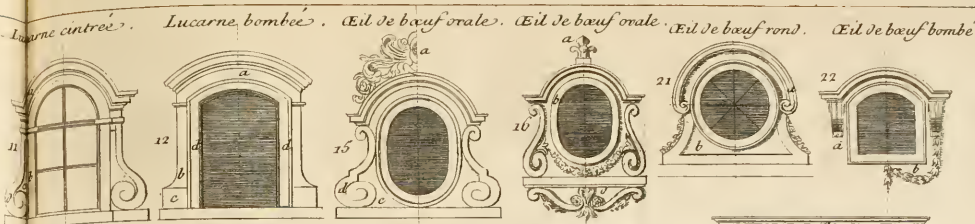 Lucarne cintreé.
Lucarne bombeé.
Œil de bœuf ovale.
Œil de bœuf ovale.
Œil de bœuf rond.
Œil de bœuf bombé
11
b
12
a
d
d
b
c
15
a
d
c
16
a
b
21
a
b
22
a
b